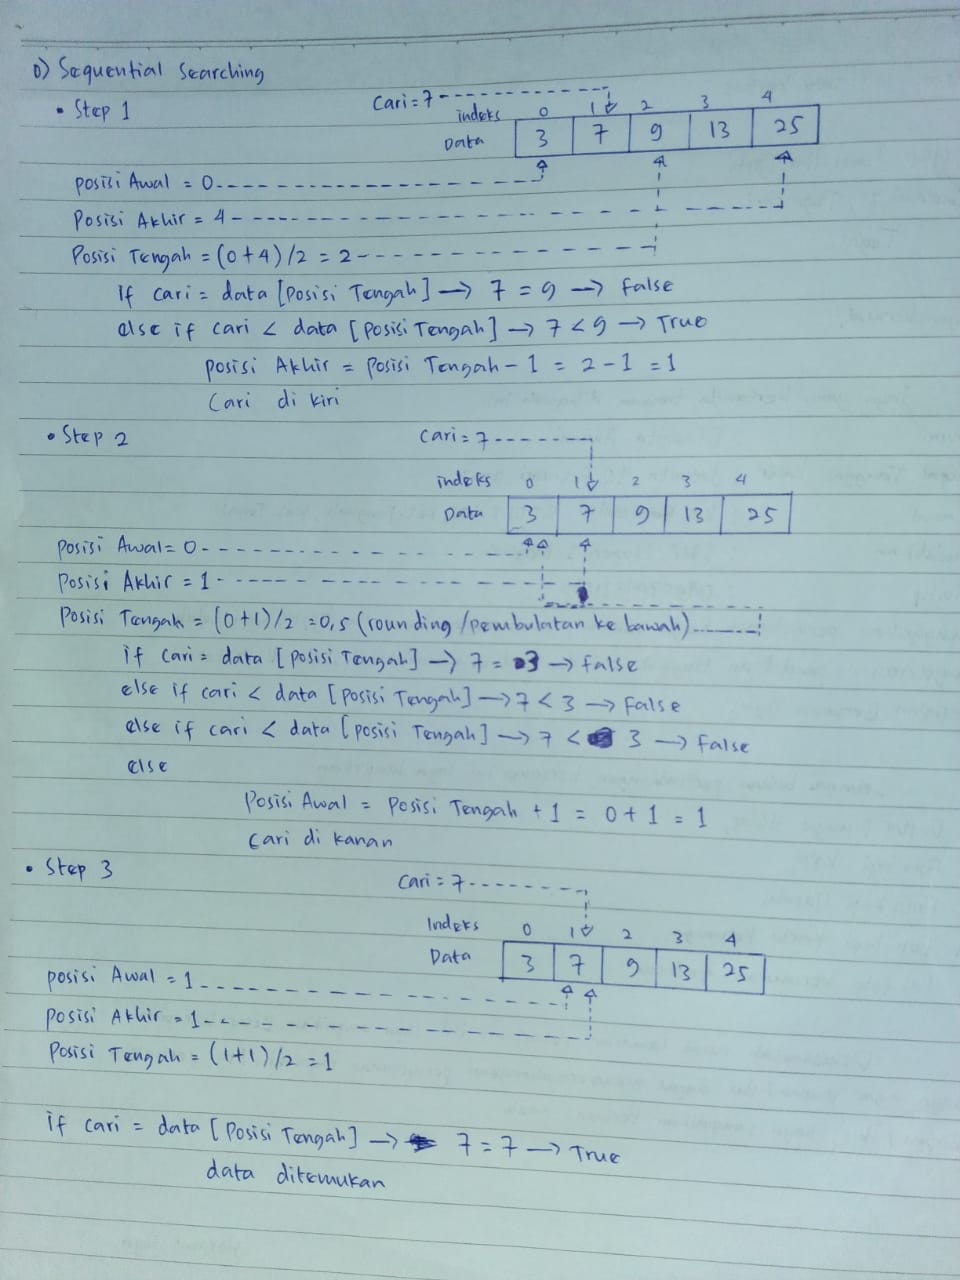 o) Sequential Searching
• Step 1
Cari = 7
indeks 0 1 2 3 4
Data 3 7 9 13 25
posisi Awal = 0
Posisi Akhir = 4
Posisi Tengah = (0+4)/2 = 2
If cari = data [Posisi Tengah] → 7 = 9 → False
else if cari < data [Posisi Tengah] → 7 < 9 → True
posisi Akhir = Posisi Tengah - 1 = 2 - 1 = 1
Cari di kiri
• Step 2
Cari = 7
indeks 0 1 2 3 4
Data 3 7 9 13 25
Posisi Awal = 0
Posisi Akhir = 1
Posisi Tengah = (0+1)/2 = 0,5 (rounding /pembulatan ke bawah)
if cari = data [Posisi Tengah] → 7 = 3 → false
else if cari < data [Posisi Tengah] → 7 < 3 → False
else if cari < data [posisi Tengah] → 7 < 3 → False
else
Posisi Awal = Posisi Tengah + 1 = 0 + 1 = 1
Cari di kanan
• Step 3
Cari = 7
Indeks 0 1 2 3 4
Data 3 7 9 13 25
posisi Awal = 1
posisi Akhir = 1
Posisi Tengah = (1+1)/2 = 1
if cari = data [Posisi Tengah] → 7 = 7 → True
data ditemukan